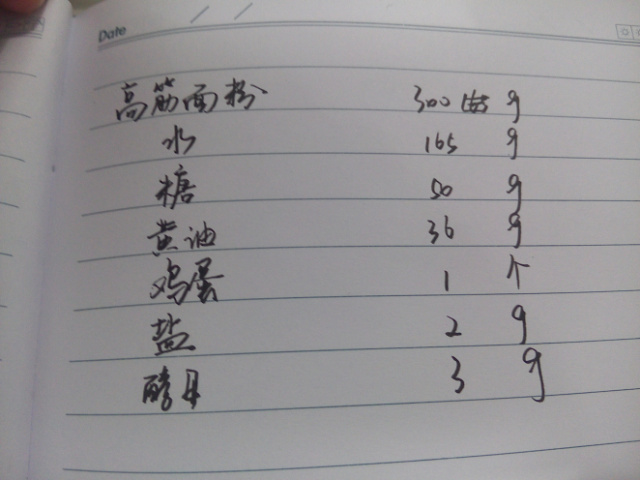 Date / /
高筋面粉 300 g
水 165 g
糖 50 g
黄油 36 g
鸡蛋 1 个
盐 2 g
酵母 3 g